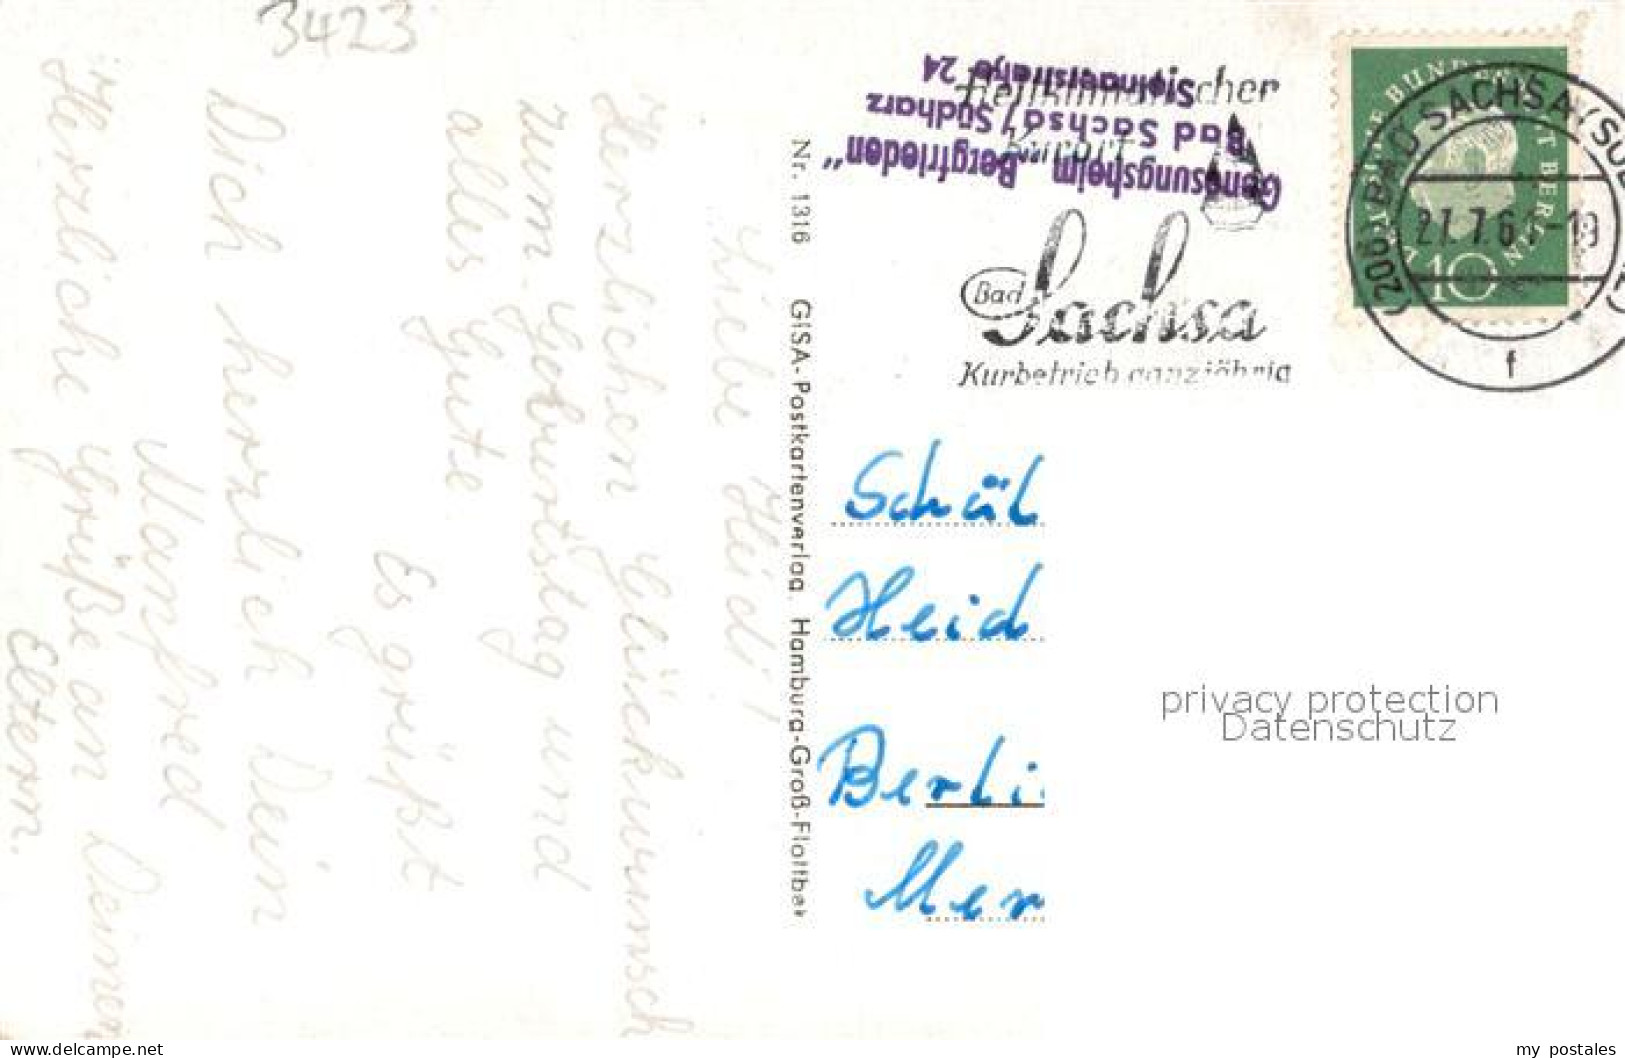 3423
Liebe Heidi!
Herzlichen Glückwunsch
zum Geburtstag und
alles Gute.
Es grüßt
Dich herzlich Dein
Manfred
Herzliche Grüße an Deinen
Eltern.
Nr. 1316 GISA-Postkartenverlag, Hamburg-Groß-Flottbek
Genesungsheim „Bergfrieden“
Bad Sachsa / Südharz
24
Heilklimatischer
Kurort
Bad Sachsa
Kurbetrieb ganzjährig
DEUTSCHE BUNDESPOST BERLIN
10
(20b) BAD SACHSA (SÜD
27.7.6 -18
f
Schäl
Heid
Berli
Mer
privacy protection
Datenschutz
delcampe.net
my_postales